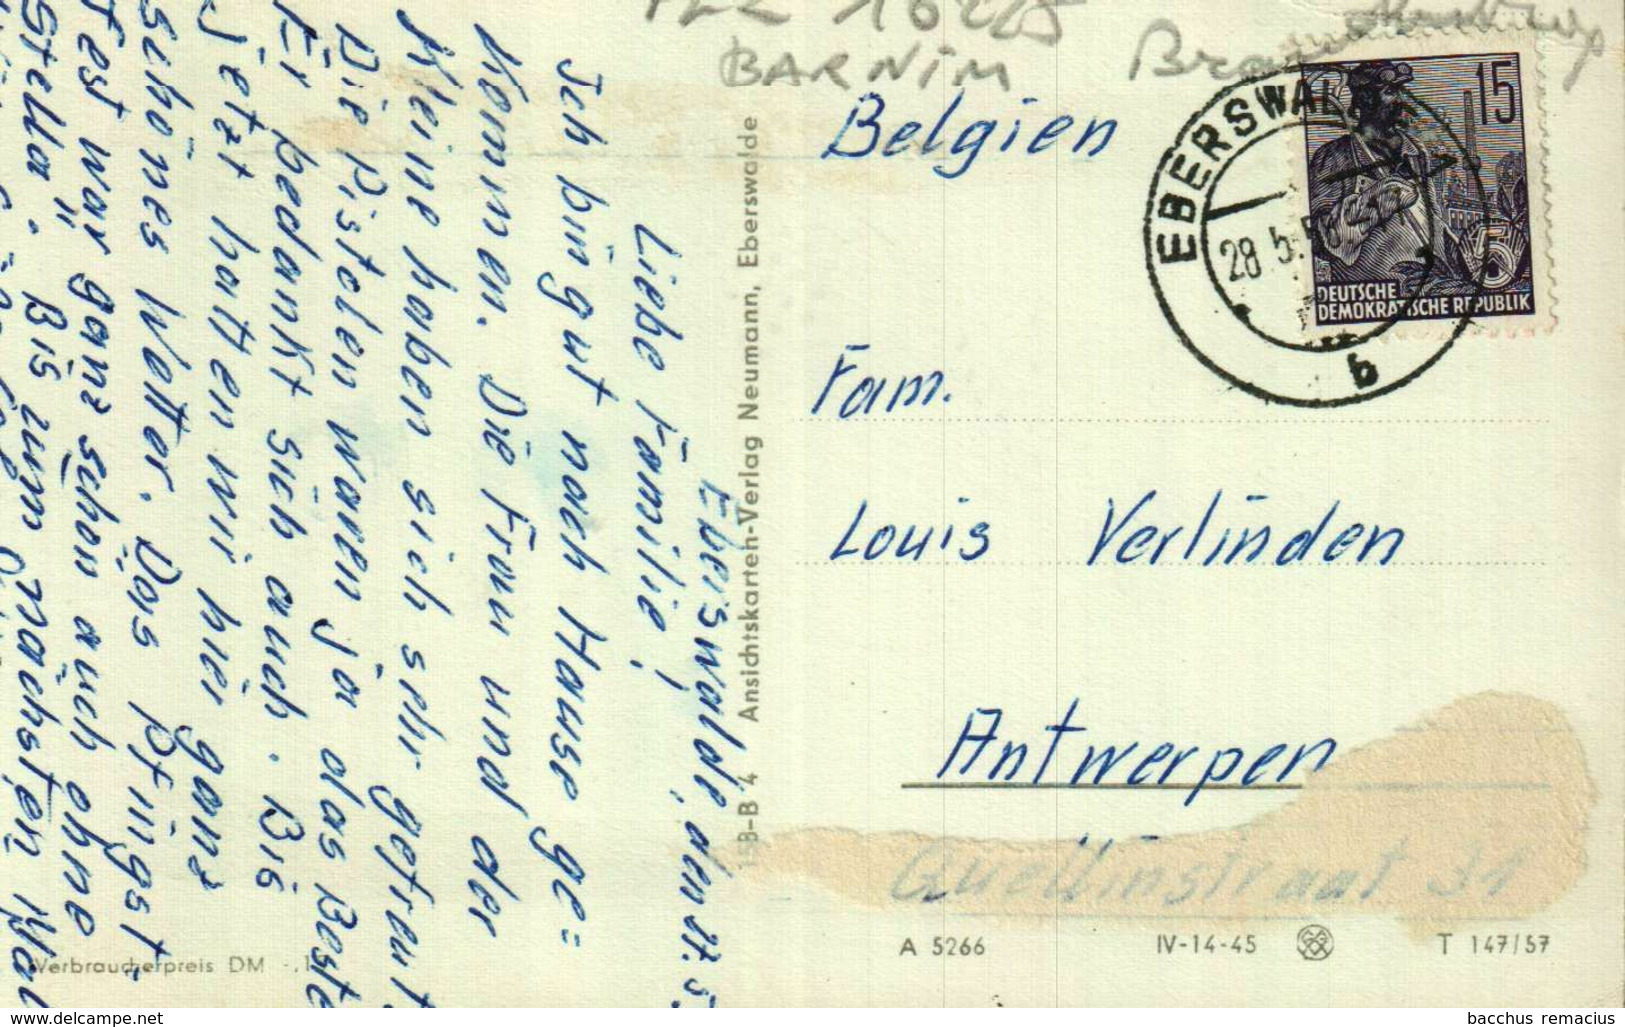 BARNIM
Belgien
Fam.
Louis Verlinden
Antwerpen
Quellinstraat 31
EBERSWALDE 1
28.5.
b
15
5
DEUTSCHE
DEMOKRATISCHE REPUBLIK
A 5266 IV-14-45 T 147/57
15B-B 4 Ansichtskarten-Verlag Neumann, Eberswalde
Verbraucherpreis DM
Eberswalde, den 27. 5.
Liebe Familie!
Ich bin gut nach Hause ge=
kommen. Die Frau und der
Kleine haben sich sehr gefreut
Die Pistolen waren ja das Beste
Er bedankt sich auch. Bis
jetzt hatten wir hier ganz
schönes Wetter. Das Pfingst-
fest war ganz schön auch ohne
Stella. Bis zum nächsten Mal
bacchus remacius
www.delcampe.net